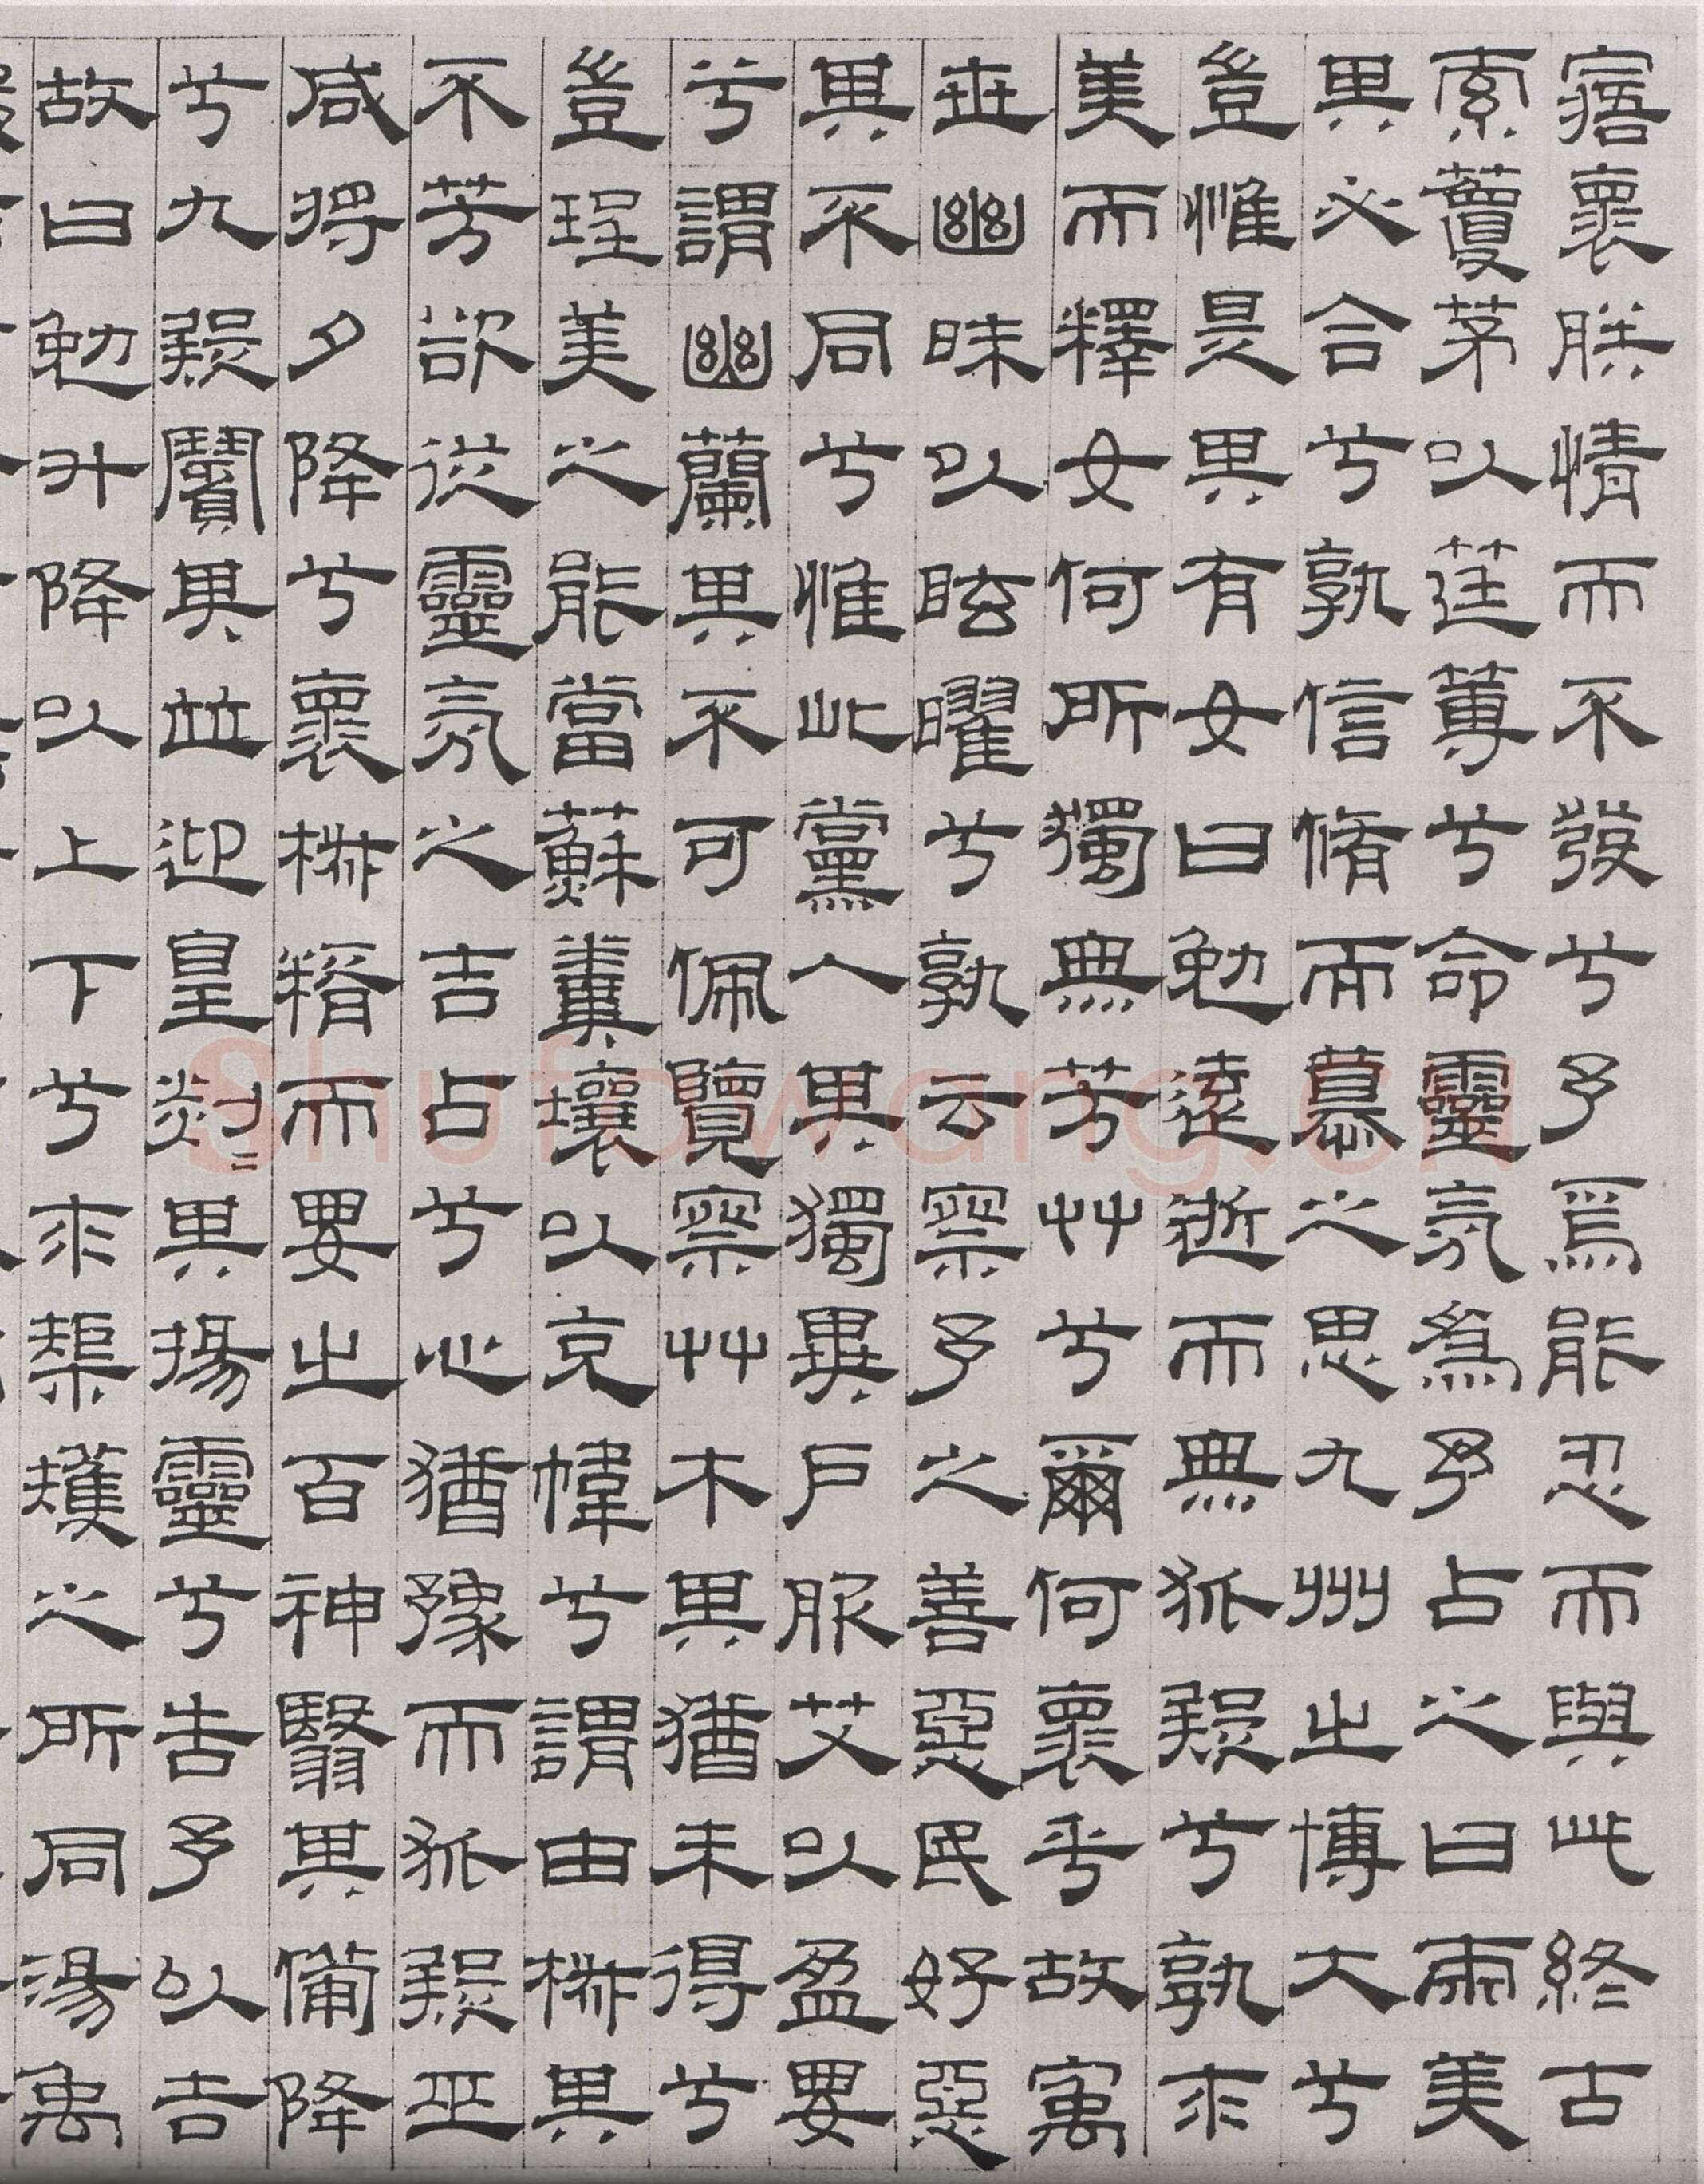 寤褱朕情而不發兮予焉能忍而與此終古
索藑茅以莛蓴兮命靈氛為予占之曰兩美
其必合兮孰信脩而慕之思九州之博大兮
豈惟是其有女曰勉遠逝而無狐疑兮孰求
美而釋女何所獨無芳艸兮爾何褱乎故㝢
世幽昧以眩曜兮孰云察予之善惡民好惡
其不同兮惟此黨人其獨異戶服艾以盈要
兮謂幽蘭其不可佩覽察艸木其猶未得兮
豈珵美之能當蘇糞壤以充幃兮謂申椒其
不芳欲從靈氛之吉占兮心猶豫而狐疑巫
咸將夕降兮褱椒糈而要之百神翳其備降
兮九疑繽其並迎皇剡〻其揚靈兮告予以吉
故曰勉升降以上下兮求榘矱之所同湯禹
shufawang.cn